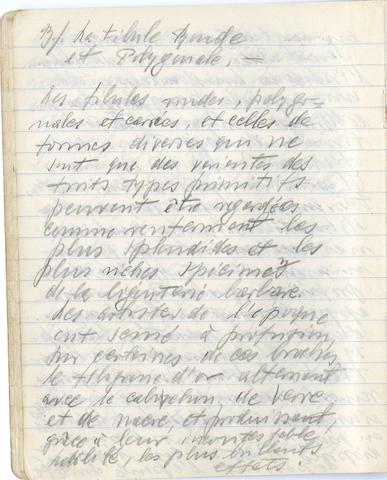 B/. La fibule Ronde
et Polygonale, —
Les fibules rondes, polygo-
nales et carrées, et celles de
formes diverses qui ne
sont que des variantes des
trois types primitifs
peuvent être regardées
comme renfermant les
plus splendides et les
plus riches spécimens
de la bijouterie barbare.
Les artistes de l'époque
ont semé à profusion,
sur certaines de ces broches,
le filigrane d'or alternant
avec le cabochon de verre
et de nacre, et produisant,
grâce à leur incontestable
habileté, les plus brillants
effets.